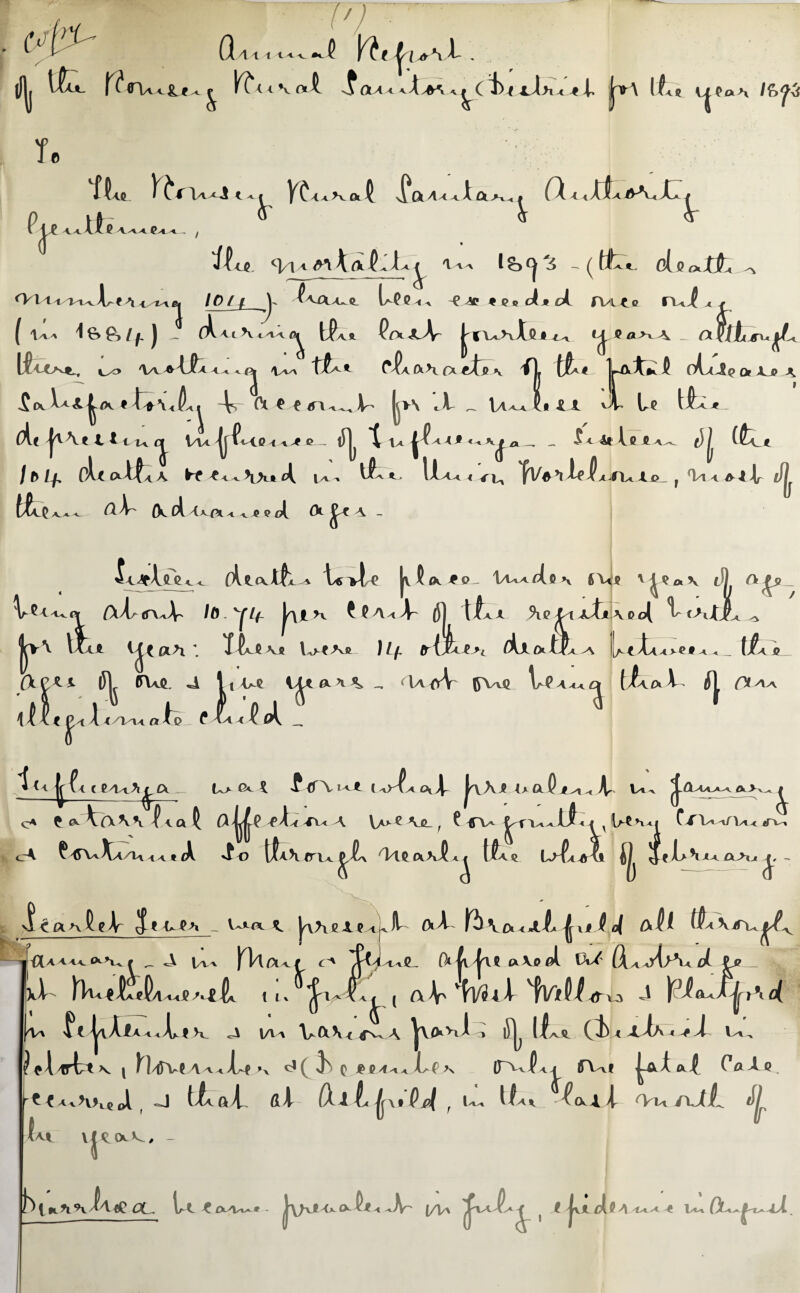 (1)
Copy
Annual Report.
of the Romsey Rural Sanitary District for the year 1893
To
The Romsey Rural Sanitary Authority
Gentlemen,
The mortality in 1893 - (the deaths
numbering 1014) - have been exceeded once only
(in 1884) - during the last fourteen years - although
there is nothing in the character of the fatal diseases
satisfactorily to account for it - unless it be the
depressing influence of Influenza - Sixteen of the
1014 deaths occurred in the Union Workhouse, most of
them at advanced ages -
Sixteen deaths took place under one year of age
being about 10.74 per cent of the registered births
for the year: There were 14 other deaths between the
ages of one & five years - not one being that of an
illegitimate child -
Influenza was somewhat prevalent in January
& catarrhal affections were, congruithly, very common
& continued so through nearly the whole of February. -
Scarlet Fever was present at Braishfield all through
January - & in May & June appeared at Awbridge
at Michelmersh in July, at West Wellow & Plaitford
in September & in various parts of the District in
October, November & December only one fatal case
occurred, & that at Ashfield, in the last month of
the year. -
Diarrhoea became prevalent in July, epidemic in August.